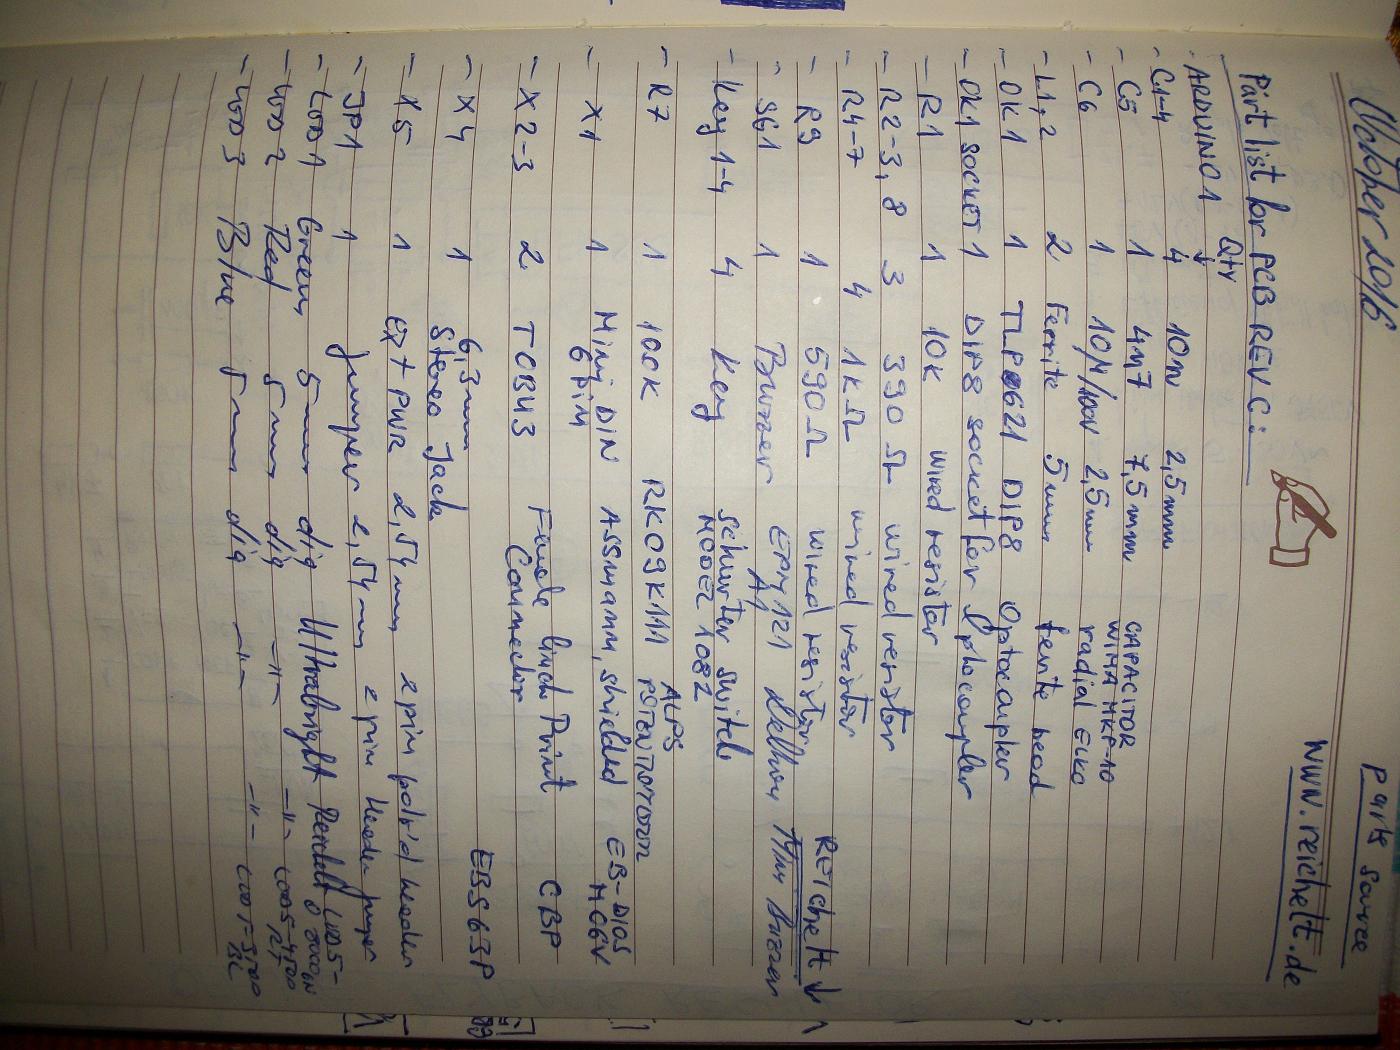 October 2016
Parts source
Part list for PCB REV C:
www.reichelt.de
Qty
- ARDUINO 1 ↓
- C1-4 4 10n 2,5mm
- C5 1 4n7 7,5mm CAPACITOR WIMA MKP-10
- C6 1 10µ/100V 2,5mm radial ELKO
- L1,2 2 Ferrite 5mm ferrite bead
- OK1 1 TLP621 DIP8 Optocoupler
- OK1 socket 1 DIP8 socket for Optocoupler
- R1 1 10k wired resistor
- R2-3, 8 3 390 Ω wired resistor
- R4-7 4 1kΩ wired resistor
- R9 1 590Ω wired resistor REICHELT ↓
- SG1 1 Buzzer
- Key 1-4 4 Key Schurter Switch
- R7 1 100K RK09K111 ALPS POTENTIOMETER
- X1 1 Mini DIN 6 pin Assmann, shielded EB-DIOS M06V
- X2-3 2 TOBU3 Female Cinch Print Connector CBP
- X4 1 6,3mm Stereo Jack EBS63P
- X5 1 EXT PWR 2,54mm 2 pin pol'd header
- JP1 1 Jumper 2,54mm 2 pin Header jumper
- LOD1 Green 5mm dia Ultrabright Reichelt
- LOD2 Red 5mm dia -"- -"-
- LOD3 Blue 5mm dia -"- -"-